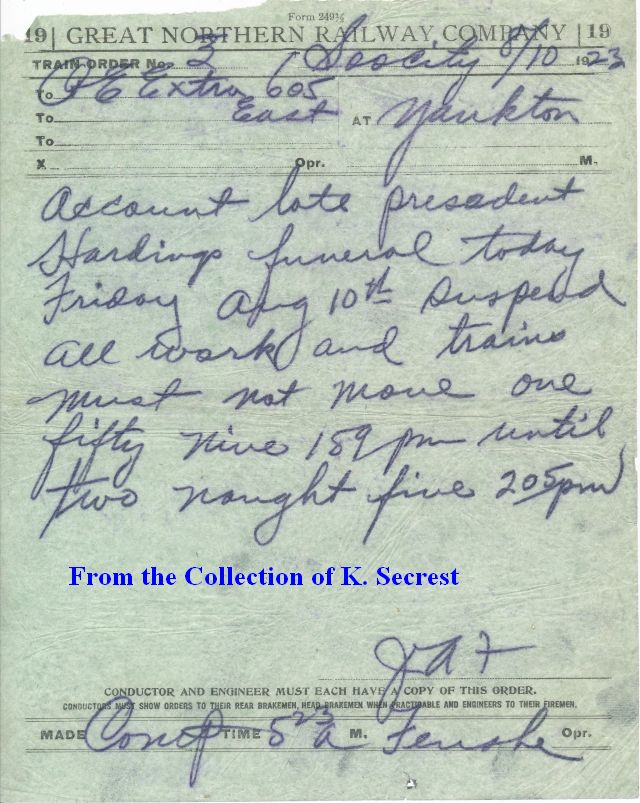 Form 249½
19| GREAT NORTHERN RAILWAY COMPANY |19
TRAIN ORDER No. 3 Soocity 8/10 1923
To C&E Extra 605
To East AT Yankton
To
X Opr. M.
Account late presedent
Hardings funeral today
Friday Aug 10th suspend
all work and trains
must not move one
fifty nine 159 pm until
two naught five 205 pm
From the Collection of K. Secrest
JAF
CONDUCTOR AND ENGINEER MUST EACH HAVE A COPY OF THIS ORDER.
CONDUCTORS MUST SHOW ORDERS TO THEIR REAR BRAKEMEN, HEAD BRAKEMEN WHEN PRACTICABLE AND ENGINEERS TO THEIR FIREMEN.
MADE Comp TIME 523 A M. Opr.